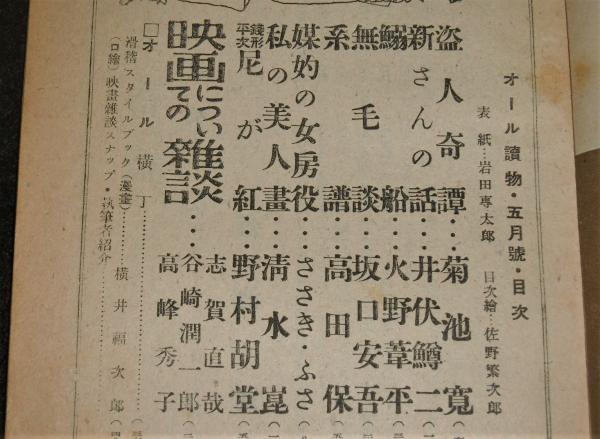 オール讀物・五月號・目次
表紙…岩田専太郎 目次繪…佐野繁次郎
盗人奇譚…菊池寛
新さんの話…井伏鱒二
鰯船…火野葦平
無毛談…坂口安吾
系譜…高田保
媒妁の女房役…ささき・ふさ
私の美人畫…清水崑
銭形平次 尼が紅…野村胡堂
映画についての雜談
志賀直哉
谷崎潤一郎
高峰秀子
□オール横丁
滑稽スタイルブック(漫畫)……横井福次郎
(口繪)映畫雜談スナップ・執筆者紹介